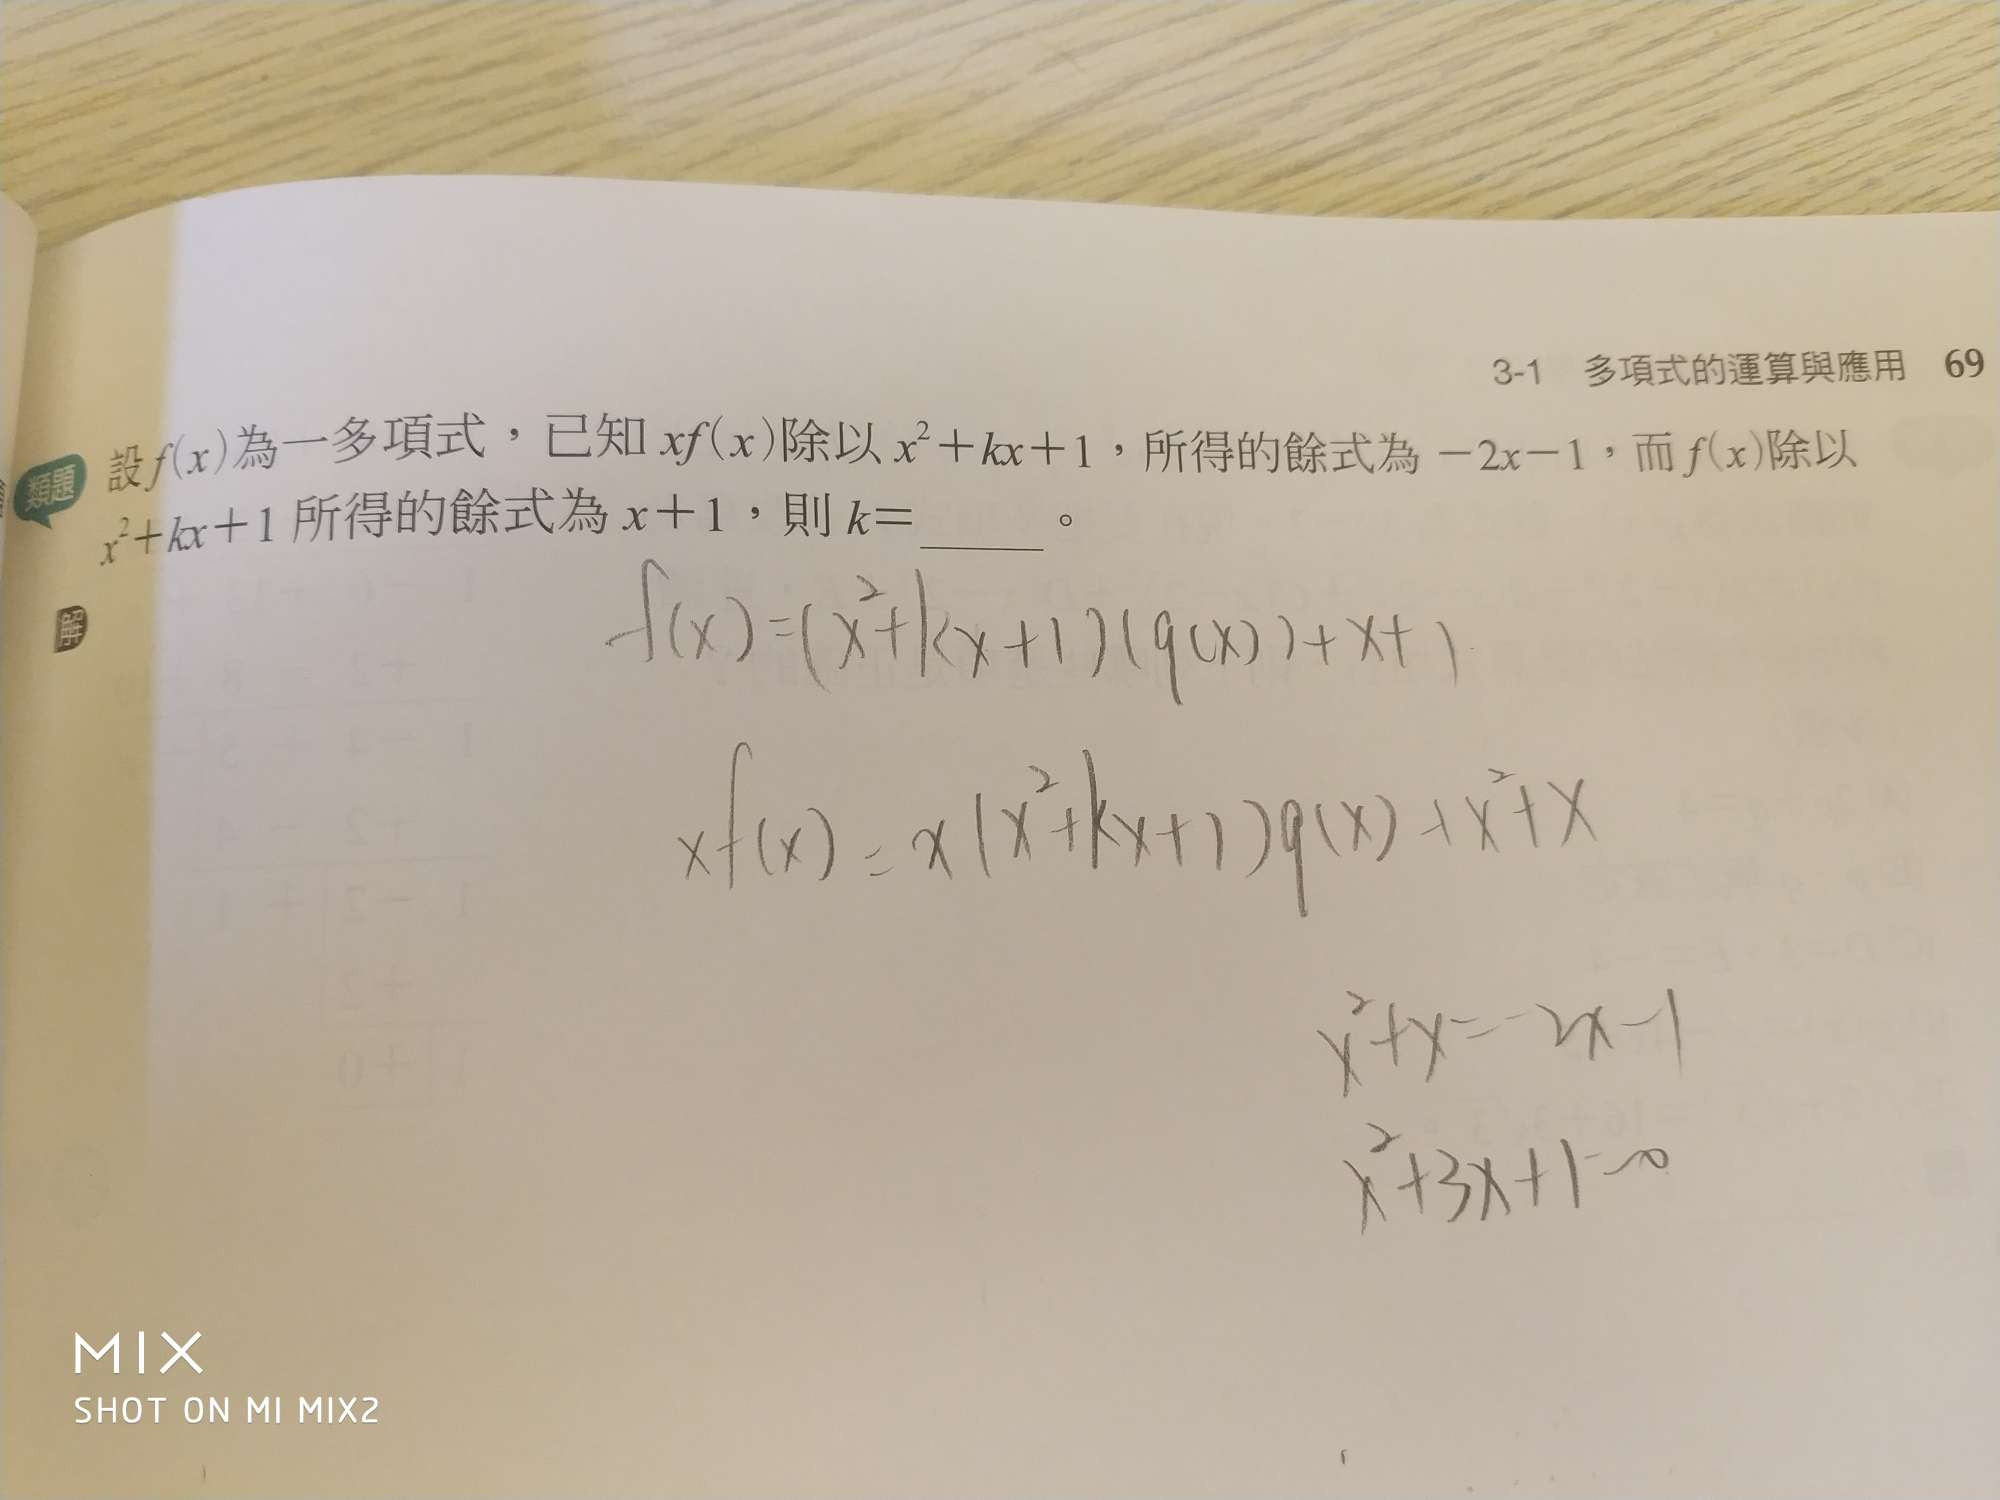 3-1 多項式的運算與應用 69
類題 設f(x)為一多項式，已知xf(x)除以x²+kx+1，所得的餘式為-2x-1，而f(x)除以
x²+kx+1所得的餘式為x+1，則k=______。
解
f(x)=(x²+kx+1)(q(x))+x+1
xf(x)=x(x²+kx+1)q(x)+x²+x
x²+x=-2x-1
x²+3x+1=0
MIX
SHOT ON MI MIX2